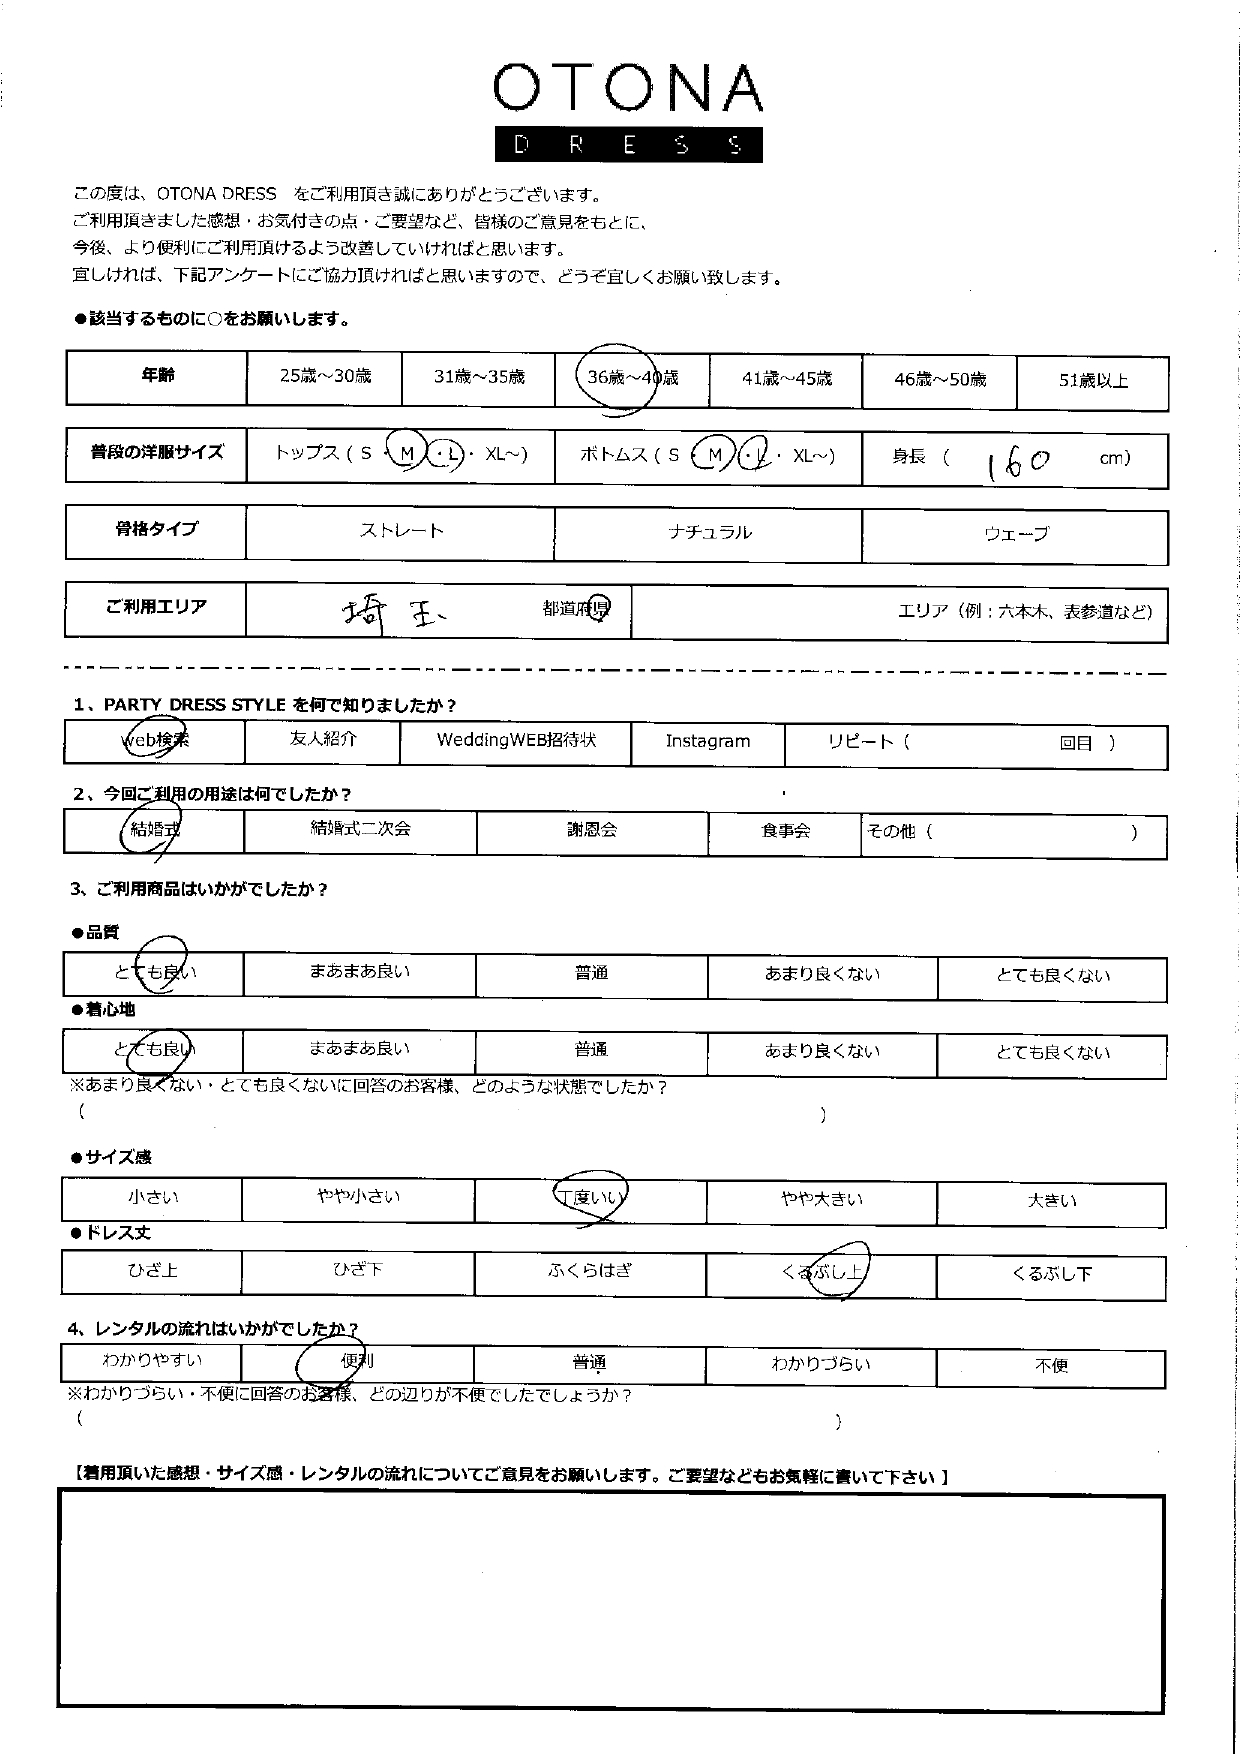 OTONA
DRESS
この度は、OTONA DRESS をご利用頂き誠にありがとうございます。
ご利用頂きました感想・お気付きの点・ご要望など、皆様のご意見をもとに、
今後、より便利にご利用頂けるよう改善していければと思います。
宜しければ、下記アンケートにご協力頂ければと思いますので、どうぞ宜しくお願い致します。
●該当するものに○をお願いします。
年齢 25歳～30歳 31歳～35歳 36歳～40歳 41歳～45歳 46歳～50歳 51歳以上
普段の洋服サイズ トップス ( S ・ M ・ L ・ XL～) ボトムス ( S ・ M ・ L ・ XL～) 身長 ( 160 cm)
骨格タイプ ストレート ナチュラル ウェーブ
ご利用エリア 埼玉 都道府県 エリア（例：六本木、表参道など）
1、PARTY DRESS STYLE を何で知りましたか？
web検索 友人紹介 WeddingWEB招待状 Instagram リピート ( 回目 )
2、今回ご利用の用途は何でしたか？
結婚式 結婚式二次会 謝恩会 食事会 その他 ( )
3、ご利用商品はいかがでしたか？
●品質
とても良い まあまあ良い 普通 あまり良くない とても良くない
●着心地
とても良い まあまあ良い 普通 あまり良くない とても良くない
※あまり良くない・とても良くないに回答のお客様、どのような状態でしたか？
( )
●サイズ感
小さい やや小さい 丁度いい やや大きい 大きい
●ドレス丈
ひざ上 ひざ下 ふくらはぎ くるぶし上 くるぶし下
4、レンタルの流れはいかがでしたか？
わかりやすい 便利 普通 わかりづらい 不便
※わかりづらい・不便に回答のお客様、どの辺りが不便でしたでしょうか？
( )
【着用頂いた感想・サイズ感・レンタルの流れについてご意見をお願いします。ご要望などもお気軽に書いて下さい 】